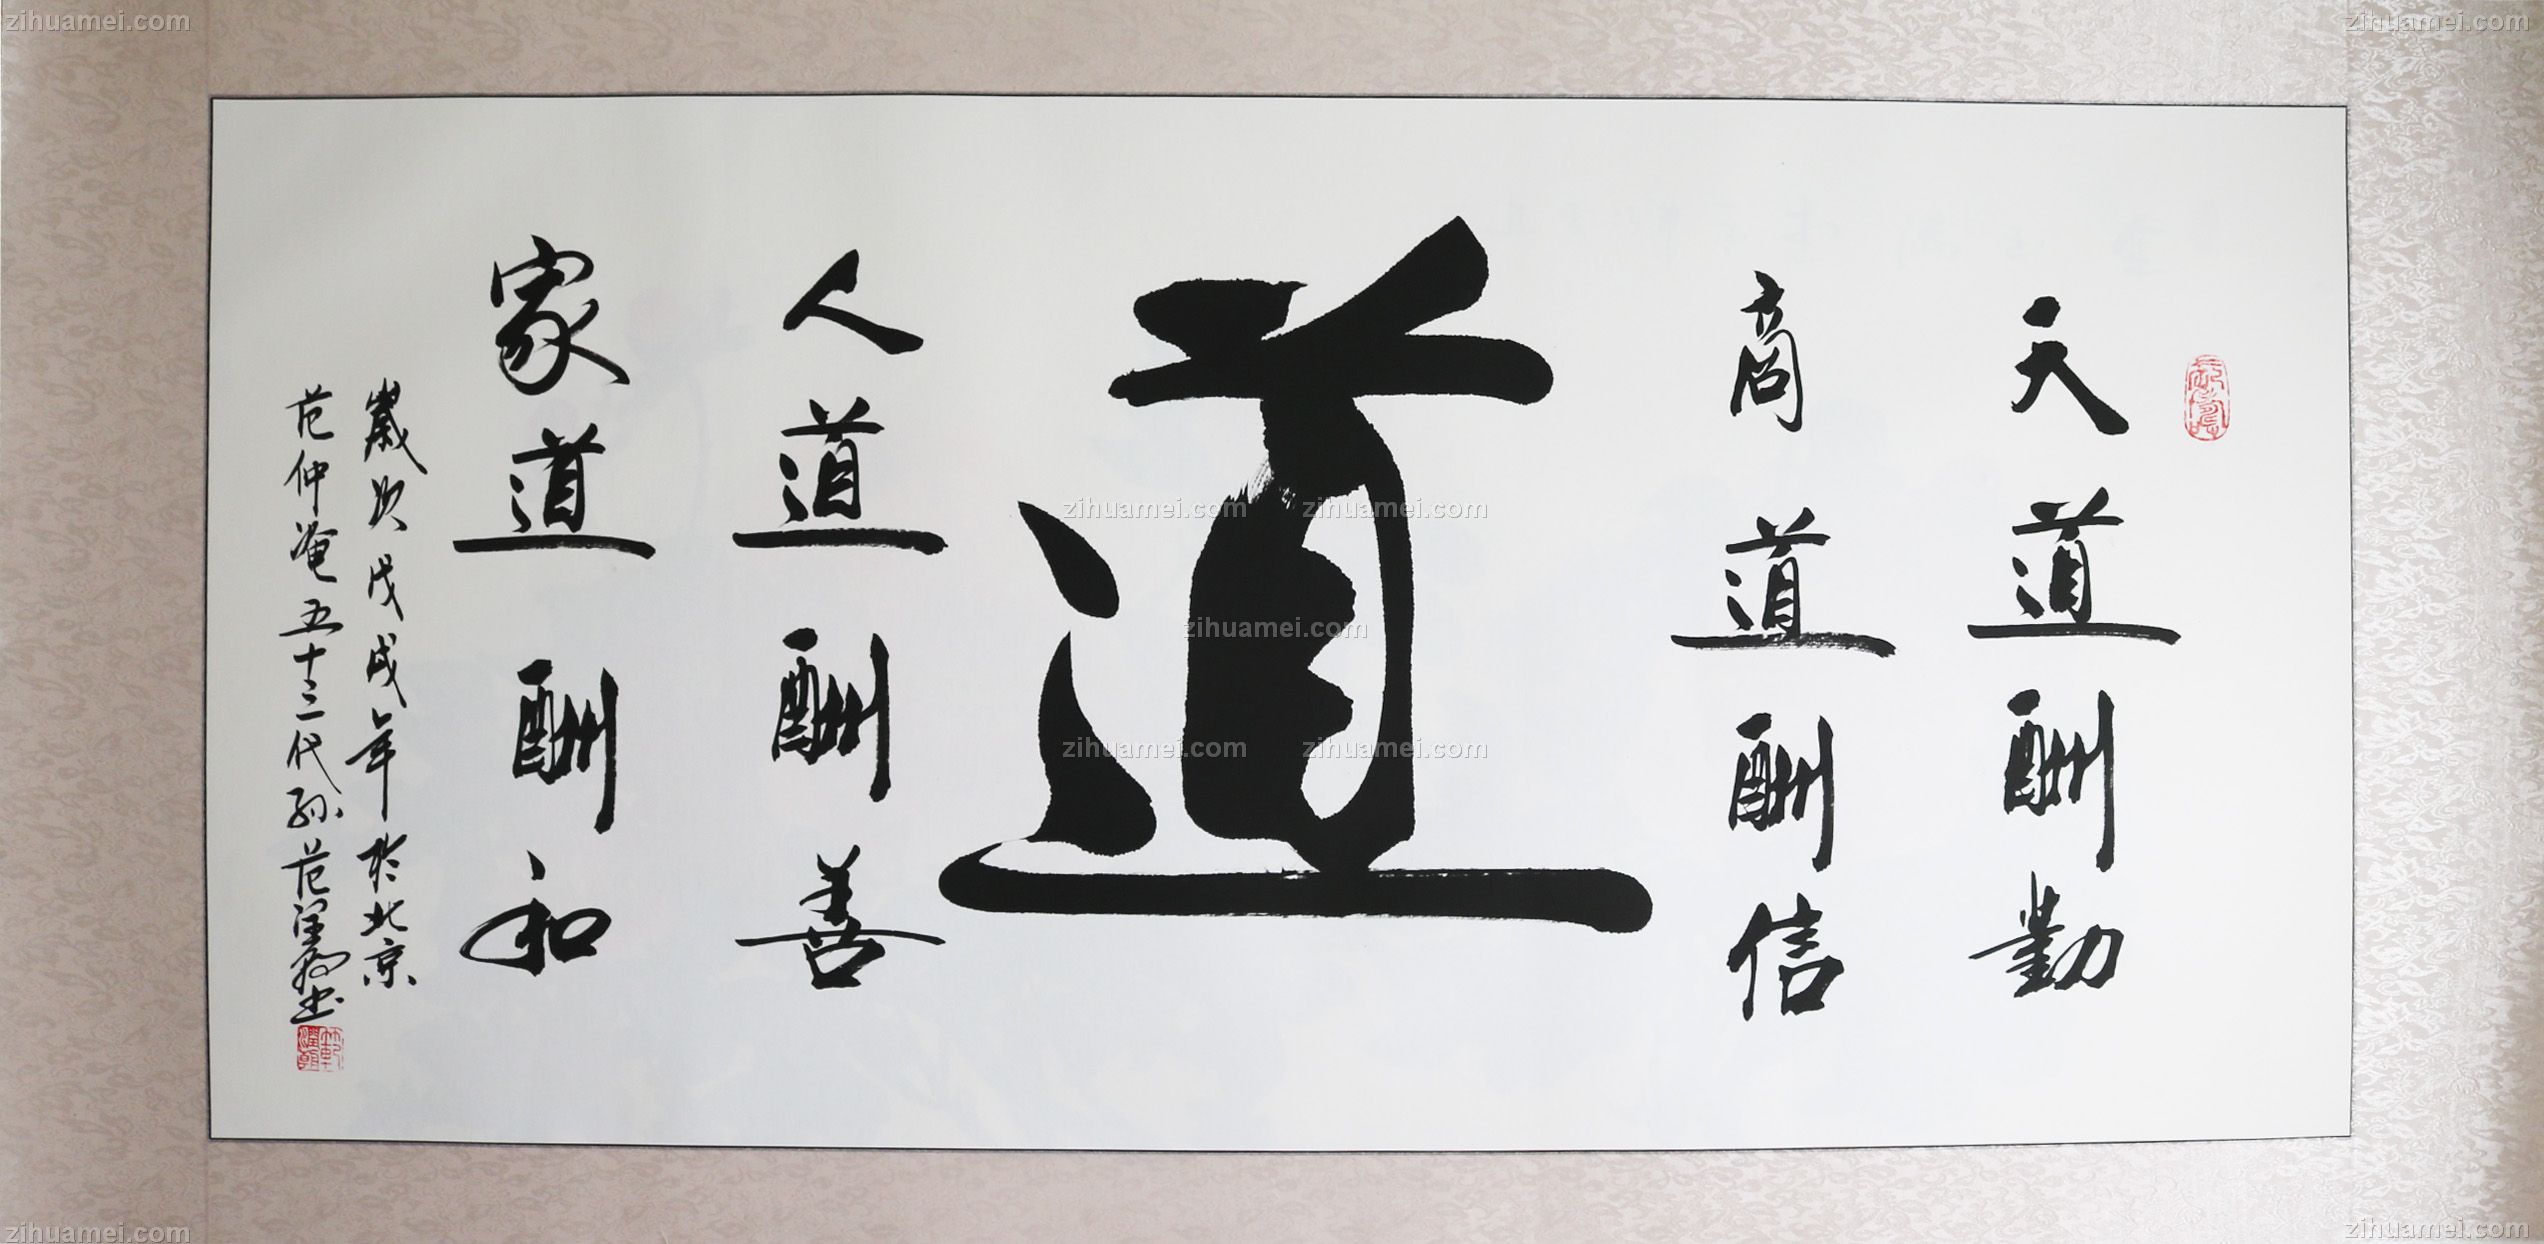 天道酬勤
商道酬信
道
人道酬善
家道酬和
歲次戊戌年於北京
范仲淹五十三代孫范
zihuamei.com
zihuamei.com
zihuamei.com
zihuamei.com
zihuamei.com
zihuamei.com
zihuamei.com
zihuamei.com
zihuamei.com